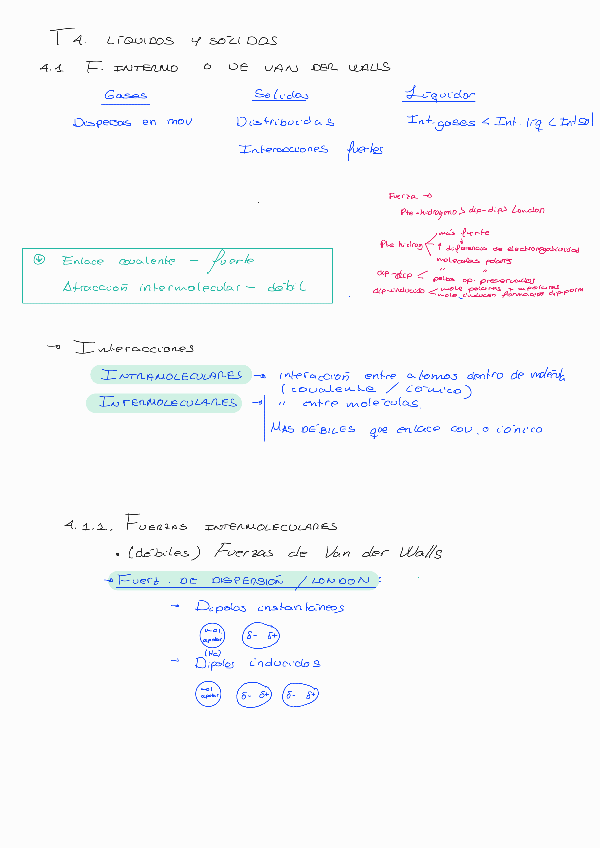 T4. LÍQUIDOS Y SÓLIDOS
4.1 F. INTERNO O DE VAN DER WALLS
Gases Solidos Líquidos
Dispersas en mov Distribuidas Int. gases < Int. líq < Int sol
Interacciones fuertes
Fuerza →
Pte-hidrogeno > dip-dip > London
Pte hidrog más fuerte
↑ diferencia de electronegatividad
moleculas polares
dip-dip < " "
polos op. preservados
dip-inducido < mole polares + apolares
mole inducen formacion dip perm
Enlace covalente - fuerte
Atracción intermolecular - débil
→ Interacciones
INTRAMOLECULARES → interacción entre átomos dentro de molécula
(covalente / iónico)
INTERMOLECULARES → " entre moléculas
MAS DÉBILES que enlace cov. o iónico
4.1.1. FUERZAS INTERMOLECULARES
• (débiles) Fuerzas de Van der Walls
→ FUERZ. DE DISPERSIÓN / LONDON:
→ Dipolos instantáneos
apolar δ- δ+
(He)
→ Dipolos inducidos
apolar δ- δ+ δ- δ+